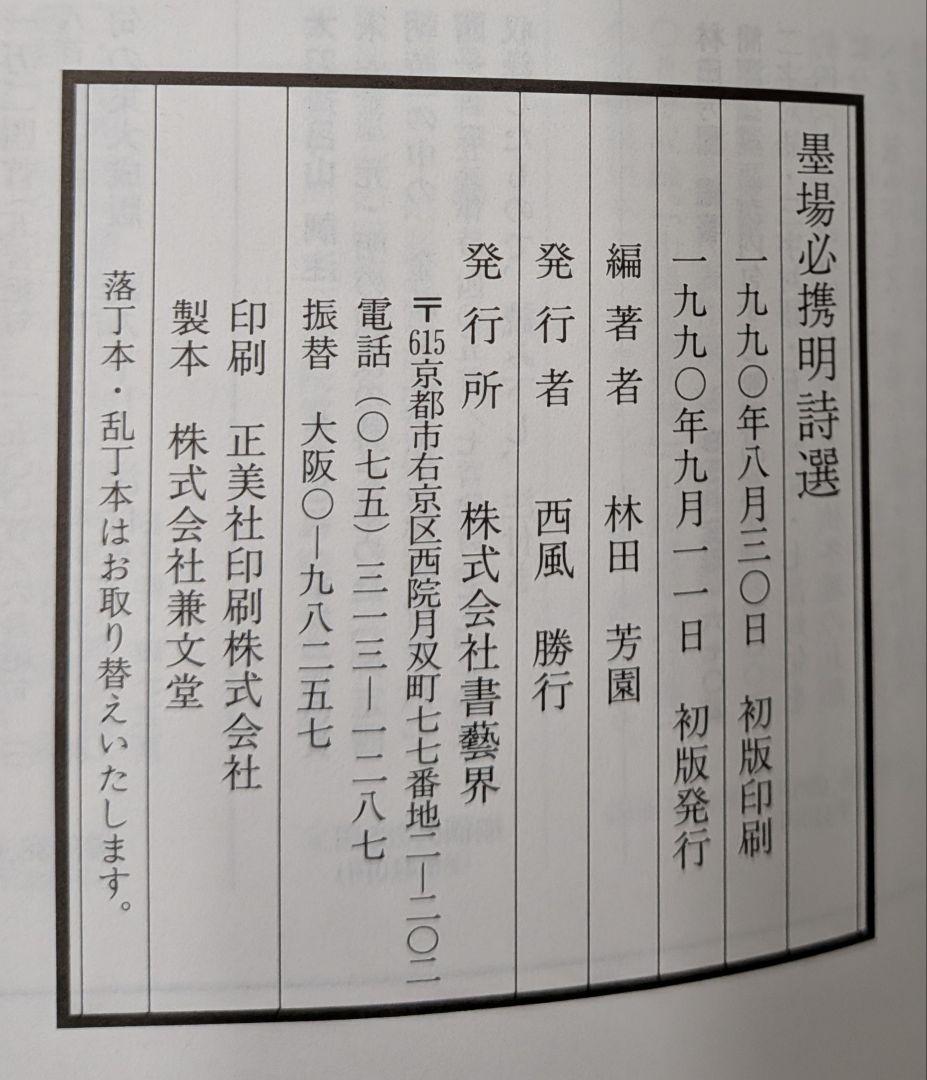 墨場必携明詩選
一九九〇年八月三〇日　初版印刷
一九九〇年九月一一日　初版発行
編著者　林田　芳園
発行者　西風　勝行
発行所　株式会社書藝界
〒615京都市右京区西院月双町七七番地二―二〇二
電話（〇七五）三一三―一二八七
振替　大阪〇―九八二五七
印刷　正美社印刷株式会社
製本　株式会社兼文堂
落丁本・乱丁本はお取り替えいたします。